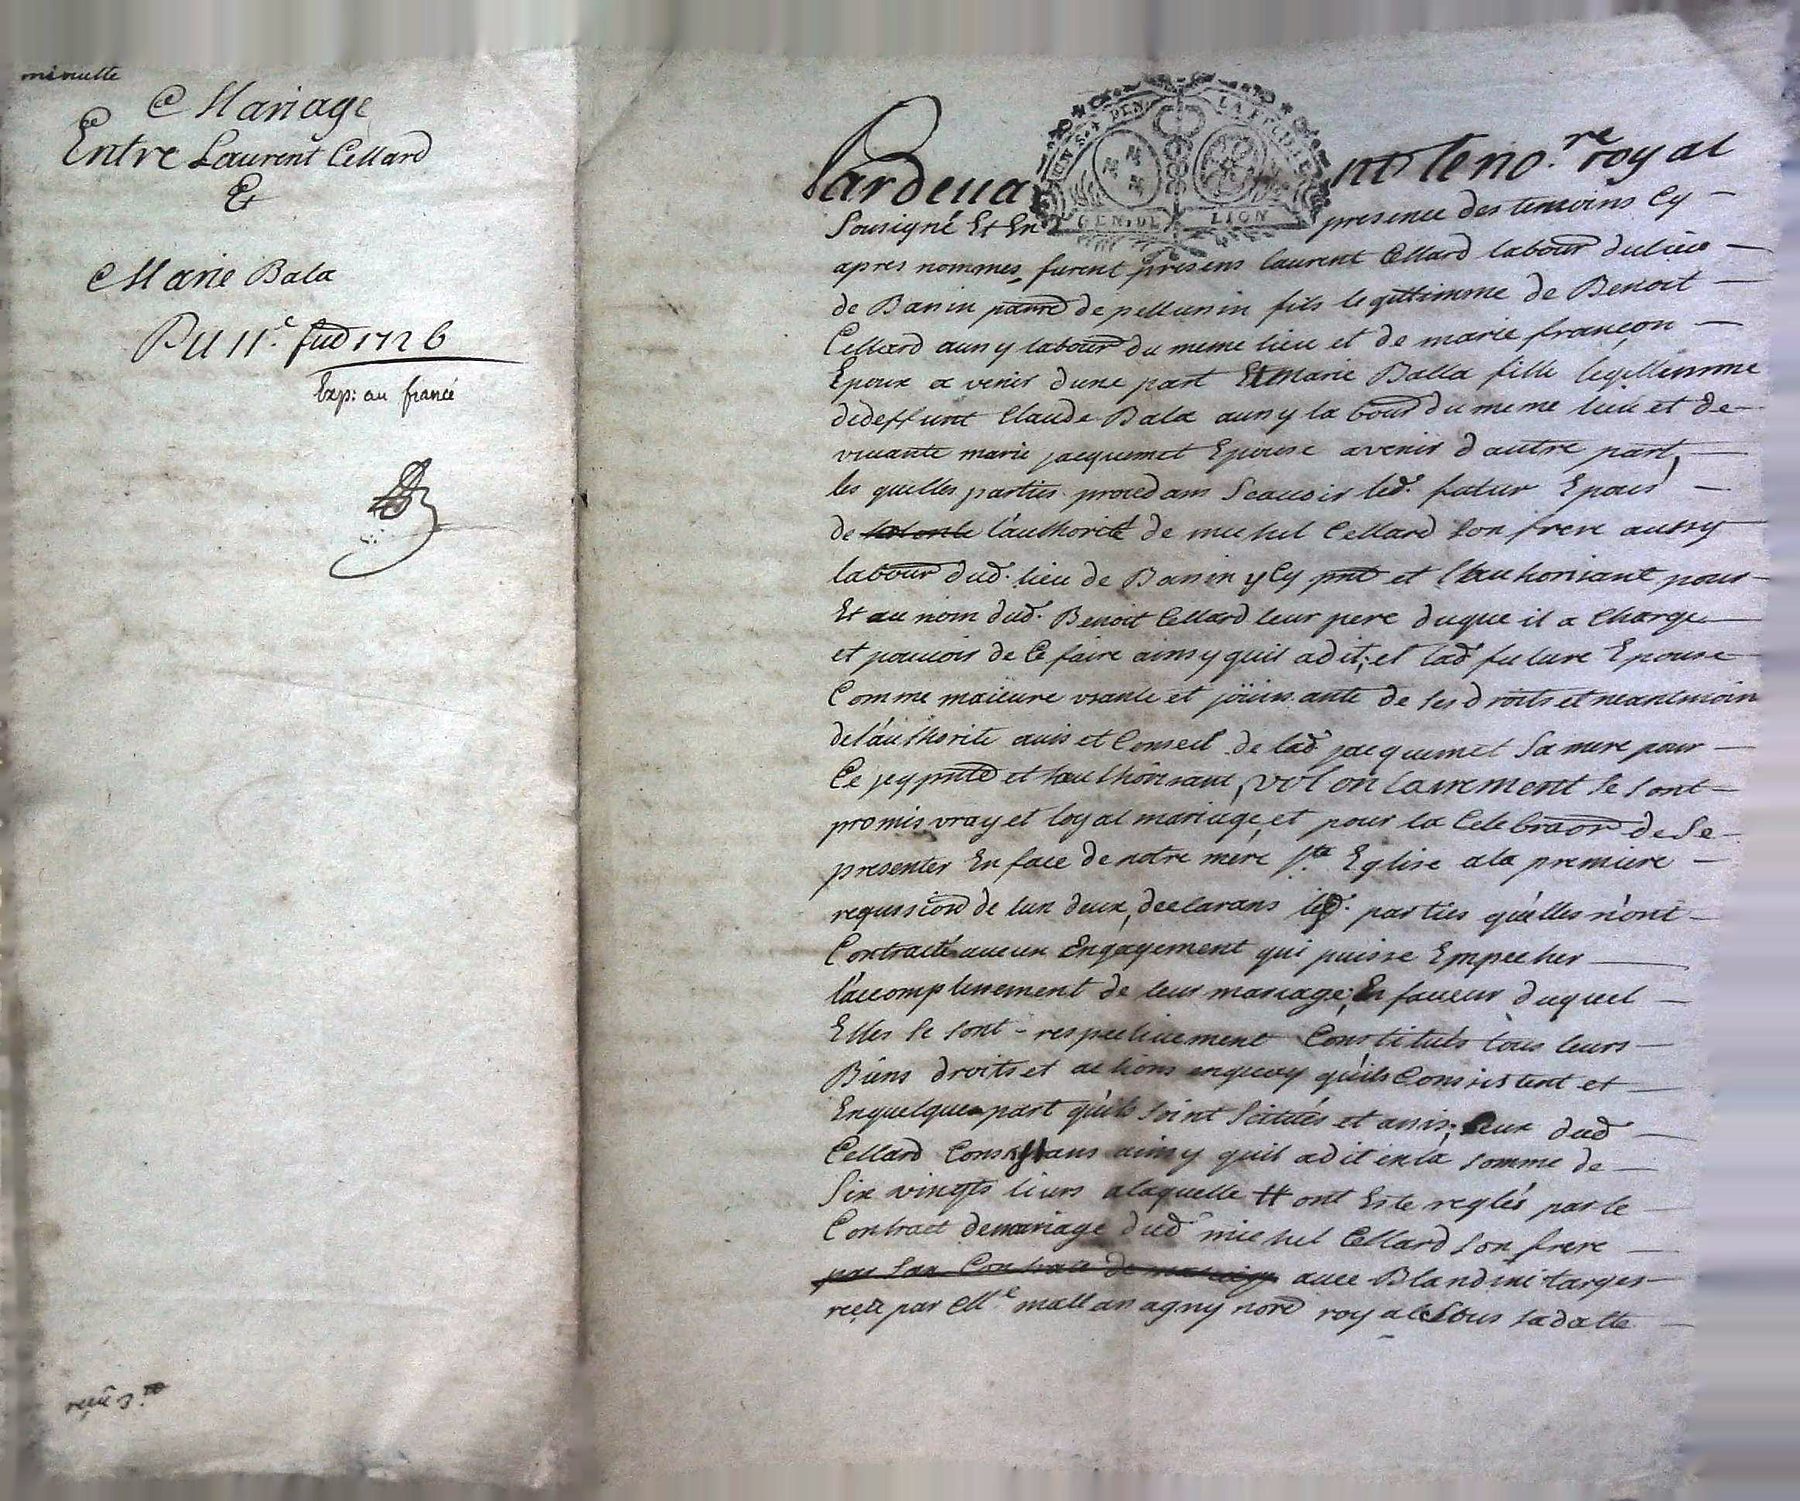 minutte
Mariage
Entre Laurent Cellard
Et
Marie Bala
Du 11e. 1726
Exp: au fiancé
reçu 3
Pardeuant le no.re royal
GEN. DE LION
Sousigné Et En presence des temoins Cy
apres nommes, furent presens laurent Cellard labour dulieu
de Banin parre de pellunin fils legittimme de Benoit
Cellard aussy labour du meme lieu et de marie françon
Epoux a venir dune part Et Marie Balla fille legittimme
dedeffunt Claude Bala aussy labour du meme lieu et de
viuante marie jacquemet Epouse avenir d'autre part,
les quelles parties procedans scauoir led. futur Epous
de l'authorité de michel Cellard son frere aussy
labour dud. lieu de Banin y Cy pnt et l'authorisant pour
Et au nom dud. Benoit Cellard leur pere duque il a Charge
et pouuoir de Ce faire ainsy quil adit; et lad future Epouse
Comme maieure usante et joüissante de ses droits et neantmoin
del'authorité auis et Conseil de lad jacquemet Sa mere pour
Ce jcy pnte et l'authorisant, volontairement se sont
promis vray et loyal mariage, et pour la Celebraon de Se
presenter En face de notre mere s.te Eglise a la premiere
requision de lun deux, declarans led. parties qu'elles n'ont
Contracté aucun Engagement qui puisse Empecher
l'accomplissement de leur mariage; En faueur duquel
Elles se sont respectiuement Constitués tous leurs
Biens droits et actions enquoy quils Consistent et
Enquelque part quils soint scitués et assis; Ceux dud
Cellard Consistans ainsy quil adit en la somme de
Six vingts liurs alaquelle ont Este reglés par le
Contract demariage dud michel Cellard son frere
par son Contract de mariage auec Blandine targes
reçu par Me mallanagny nore royal Sous sadatte